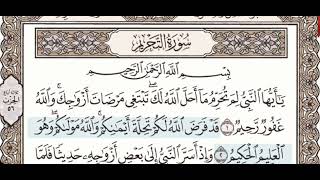 سُورَةُ التَّحْرِيمِ
بِسْمِ ٱللَّهِ ٱلرَّحْمَٰنِ ٱلرَّحِيمِ
يَٰٓأَيُّهَا ٱلنَّبِيُّ لِمَ تُحَرِّمُ مَآ أَحَلَّ ٱللَّهُ لَكَۖ تَبْتَغِي مَرْضَاتَ أَزْوَٰجِكَۚ وَٱللَّهُ
غَفُورٌ رَّحِيمٌ ١ قَدْ فَرَضَ ٱللَّهُ لَكُمْ تَحِلَّةَ أَيْمَٰنِكُمْۚ وَٱللَّهُ مَوْلَىٰكُمْۖ وَهُوَ
ٱلْعَلِيمُ ٱلْحَكِيمُ ٢ وَإِذْ أَسَرَّ ٱلنَّبِيُّ إِلَىٰ بَعْضِ أَزْوَٰجِهِۦ حَدِيثًا فَلَمَّا
الحزب
٥٦